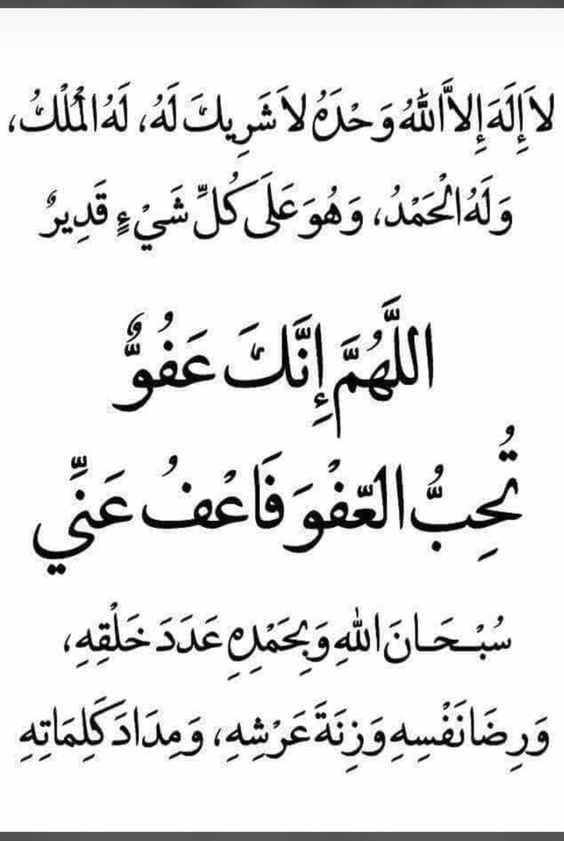 لاَ إِلَهَ إِلاَّ اللهُ وَحْدَهُ لاَ شَرِيكَ لَهُ، لَهُ الْمُلْكُ،
وَلَهُ الْحَمْدُ، وَهُوَ عَلَى كُلِّ شَيْءٍ قَدِيرٌ
اللَّهُمَّ إِنَّكَ عَفُوٌّ
تُحِبُّ الْعَفْوَ فَاعْفُ عَنِّي
سُبْحَانَ اللهِ وَبِحَمْدِهِ عَدَدَ خَلْقِهِ،
وَرِضَا نَفْسِهِ وَزِنَةَ عَرْشِهِ، وَمِدَادَ كَلِمَاتِهِ